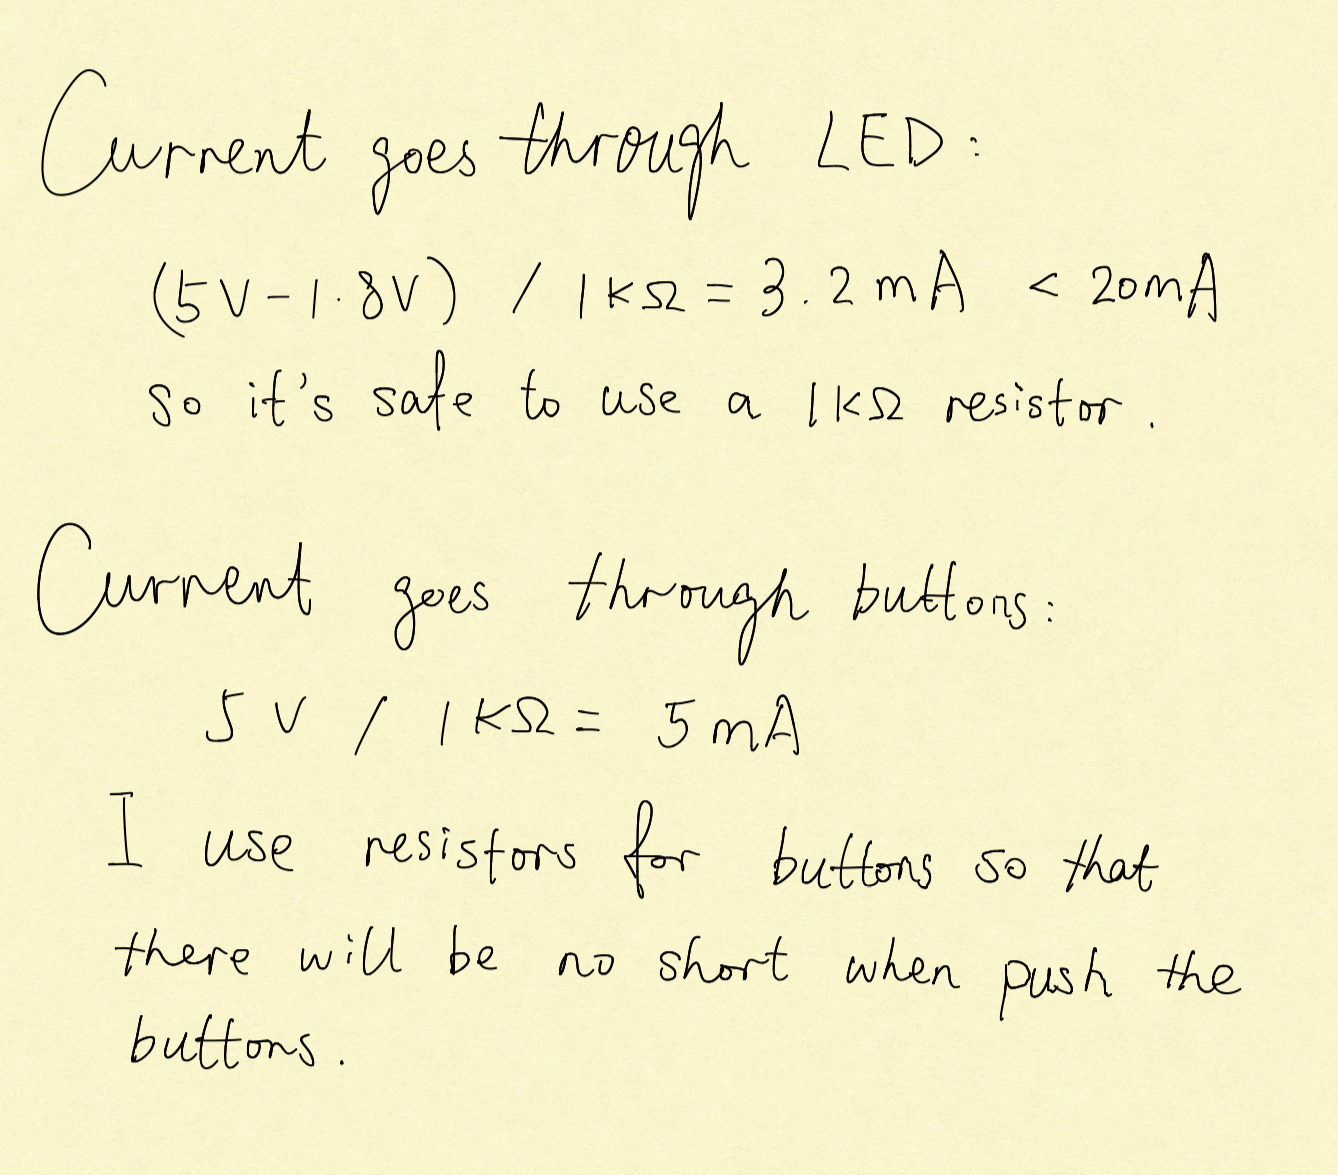 Current goes through LED:
(5V-1.8V) / 1kΩ = 3.2mA < 20mA
so it's safe to use a 1kΩ resistor.
Current goes through buttons:
5V / 1kΩ = 5mA
I use resistors for buttons so that
there will be no short when push the
buttons.